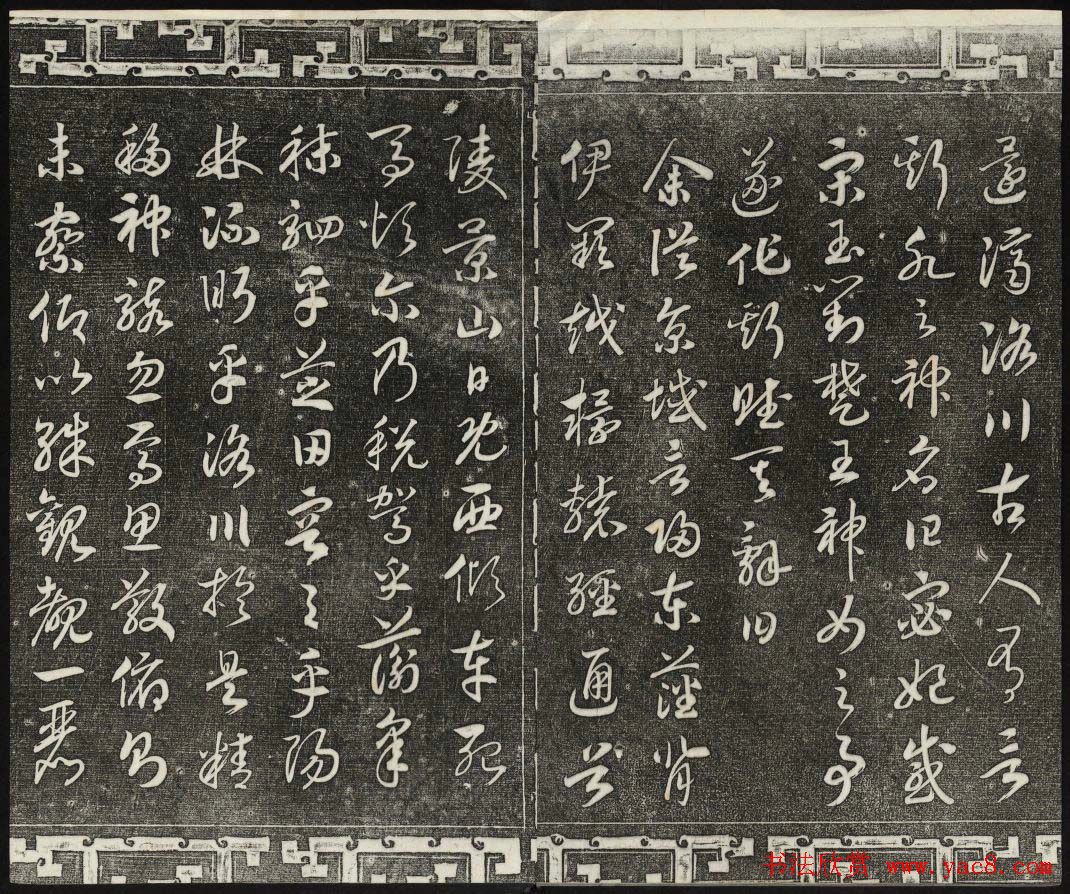 還濟洛川古人有言
斯水之神名曰宓妃感
宋玉對楚王神女之事
遂作斯賦其辭曰
余從京域言歸東藩背
伊闕越轘轅經通谷
陵景山日既西傾車殆
馬煩尔乃稅駕乎蘅皋
秣駟乎芝田容與乎陽
林流眄乎洛川於是精
移神駭忽焉思散俯則
未察仰以殊觀覩一麗
书法欣赏 www.yac8.com